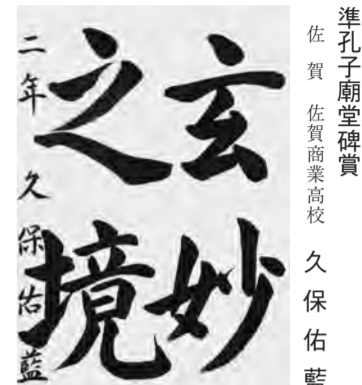 準孔子廟堂碑賞
佐賀 佐賀商業高校 久保佑藍
玄妙
之境
二年 久保佑藍